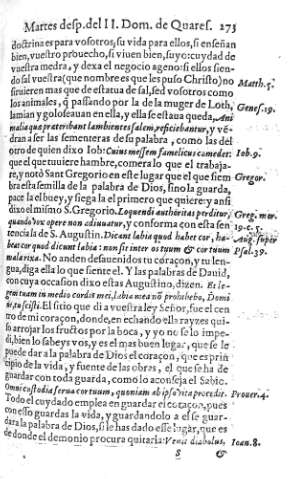 Martes desp.del II. Dom. de Quares. 275
doctrina es para vosotros, su vida para ellos, si enseñan
bien, vuestro prouecho, si viuen bien, suyo: cuydad de
vuestra medra, y dexa el negocio ageno: si ellos sien-
do sal vuestra (que nombre es que les puso Christo) no
siruieren mas que de estatua de sal, sed vosotros como
los animales, q̃ passando por la de la muger de Loth,
lamian y goloseauan en ella, y ella se estaua queda, Ani
malia quæ præteribant lambientes salem, reficiebantur, y vẽ-
dran a ser las sementeras de su palabra, como las del
otro de quien dixo Iob: Cuius messem famelicus comedet:
que el que tuuiere hambre, comera lo que el trabaja-
re, y notò Sant Gregorio en este lugar que el que siem
bra esta semilla de la palabra de Dios, sino la guarda,
pace la el buey, y siega la el primero que quiere: y ansi
dixo el mismo S. Gregorio. Loquendi authoritas perditur,
quando vox opere non adiuuatur, y conforma con esta sen
tencia la de S. Augustin. Dicant labia quod habet cor, ha-
beat cor quod dicunt labia: non sit inter os tuum & cor tuum
mala rixa. No anden desauenidos tu coraçon, y tu len-
gua, diga ella lo que siente el. Y las palabras de Dauid,
con cuya occasion dixo estas Augustino, dizen. Et le-
gem tuam in medio cordis mei, labia mea nõ prohibebo, Domi
ne, tu scisti. El sitio que di a vuestra ley Señor, fue el cen
tro de mi coraçon, donde, en echando ella rayzes qui-
so arrojar los fructos por la boca, y yo no se lo impe-
di, bien lo sabeys vos, y es el mas buen lugar, que se le
puede dar a la palabra de Dios el coraçon, que es prin
cipio de la vida, y fuente de las obras, el que se ha de
guardar con toda guarda, como lo aconseja el Sabio.
Omni custodia serua cor tuum, quoniam ab ipso vita procedit.
Todo el cuydado emplea en guardar el coraçon, pues
con esso guardas la vida, y guardandolo a el se guar-
dara la palabra de Dios, si le has dado esse lugar, que es
de donde el demonio procura quitarla: Venit diabolus,
S &
Matth. 5.
Genes. 19.
Iob. 9.
Gregor.
Greg. mor.
19. c. 5.
Aug. super
Psal. 39.
Prouer. 4.
Ioan. 8.